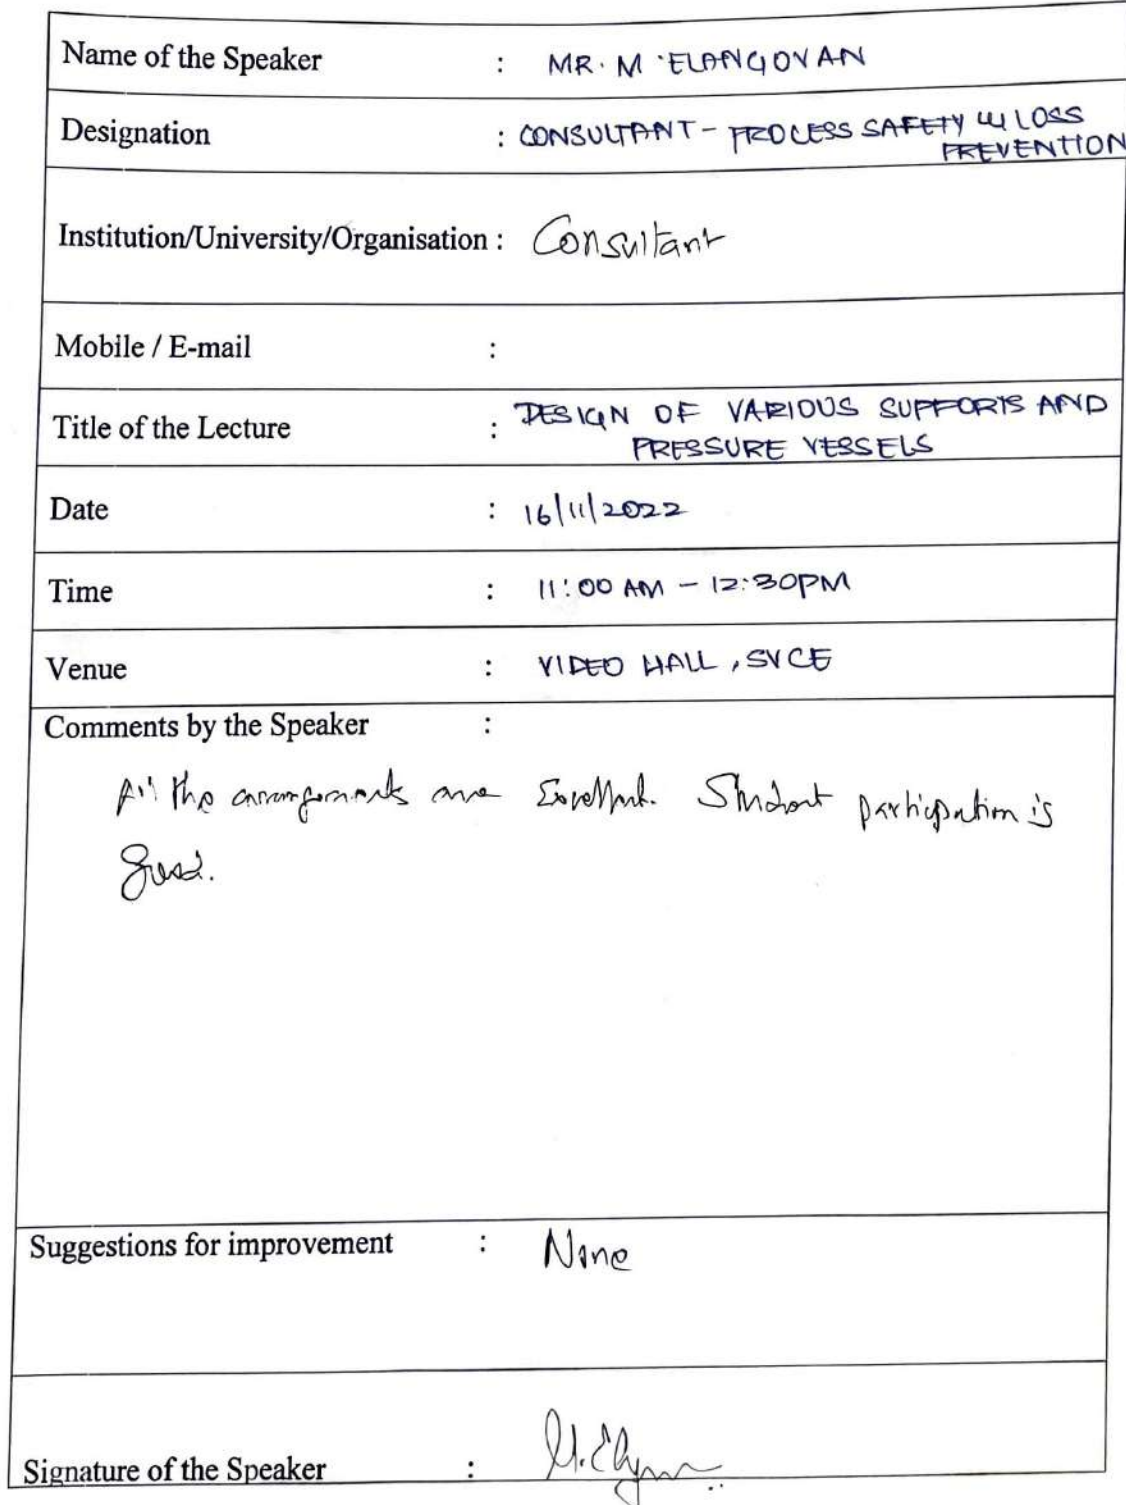 Name of the Speaker : MR. M. ELANGOVAN
Designation : CONSULTANT - PROCESS SAFETY LOSS
PREVENTION
Institution/University/Organisation : Consultant
Mobile / E-mail :
Title of the Lecture : DESIGN OF VARIOUS SUPPORTS AND
PRESSURE VESSELS
Date : 16/11/2022
Time : 11:00 AM - 12:30PM
Venue : VIDEO HALL, SVCE
Comments by the Speaker :
All the arrangements are Excellent. Student participation is
good.
Suggestions for improvement : None
Signature of the Speaker :